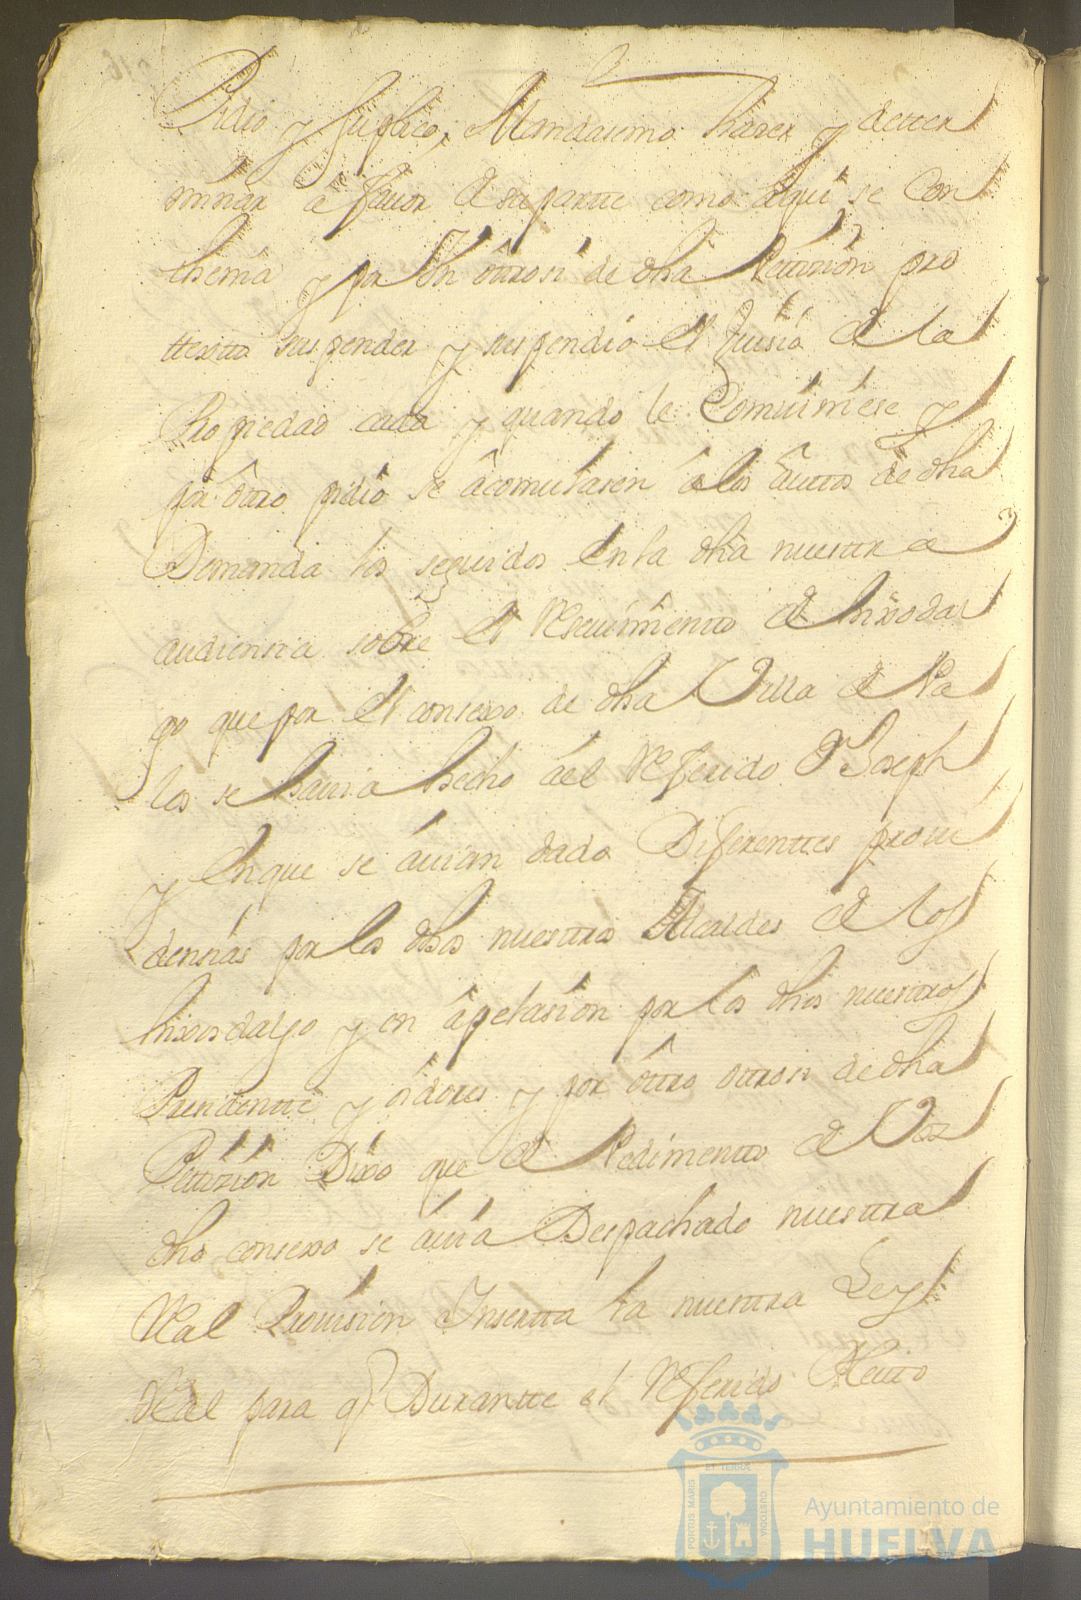 Pidio y suplico, Mandasemos haser y deter
minar â favor de su parte como aqui se Con
thenia y por Un ôtrosi de dha Petizion pro
ttextto suspender y suspendio el Juisio de la
Propiedad cada y quando le Comviniese y
por ôtro pidio se âcomulasen â los Autos de dha
Demanda los seguidos en la dha nuestra
audiensia sobre el Resevimiento de hixodal
go que por el consexo de dha Villa de Pa
los se havia hecho âel Referido Dn Joseph
y en que se âuian dado Diferenttes provi
densias por los dhos nuestros Alcaldes de los
hixosdalgo y en âpelasion por los dhos nuestros
Presidentte y oidores y por ôttro ottrosi de dha
Petizion Dixo que de Pedimento de Vos
dho consexo se âuia Despachado nuestra
Real Provision Insertta la nuestra Ley
Real para q Durantte el Referido Pleito
PORTUS MARIS
ET TERRÆ
CUSTODIA
Ayuntamiento de
HUELVA